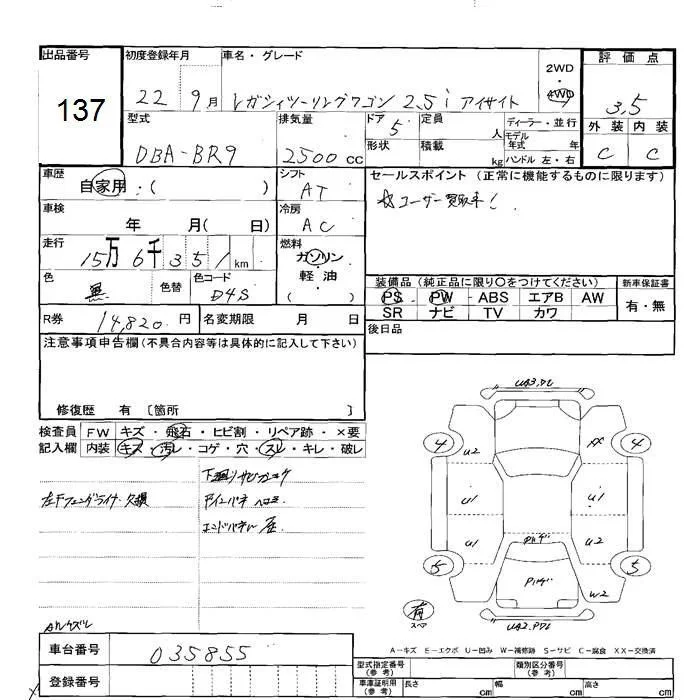 出品番号
137
初度登録年月
22年 9月
車名・グレード
レガシィツーリングワゴン 2.5i アイサイト
2WD
・
4WD
評価点
3.5
外装 内装
C C
型式
DBA-BR9
排気量
2500 cc
ドア 5
形状
定員 人
積載 kg
ディーラー・並行
モデル年式 年
ハンドル 左・右
車歴
自家用・( )
シフト
AT
セールスポイント (正常に機能するものに限ります)
☆ユーザー買取車!
車検
年 月( 日)
冷房
AC
走行
15万6千351km
燃料
ガソリン
・
軽油
( )
色
黒
色替
色コード
D4S
装備品(純正品に限り○をつけてください)
PS PW ABS エアB AW
SR ナビ TV カワ
新車保証書
有・無
R券 14,820円
名変期限 月 日
後日品
注意事項申告欄(不具合内容等は具体的に記入して下さい)
修復歴 有 〔箇所 〕
検査員 FW キズ・飛石・ヒビ割・リペア跡・×要
記入欄 内装 キズ・汚レ・コゲ・穴・スレ・キレ・破レ
下廻りサビ
左Fフェンダライナ欠損
エンドパネル
UA3.PDL
4
4
U2
XX
U1
U1
U1
U2
PDLデ
PDLデ
5
5
W2
有
スペア
UA2.PDL
A-キズ E-エクボ U-凹み W-補修跡 S-サビ C-腐食 XX-交換済
車台番号
035855
登録番号
型式指定番号(参考)
類別区分番号(参考)
車庫証明用(参考) 長さ cm 幅 cm 高さ cm